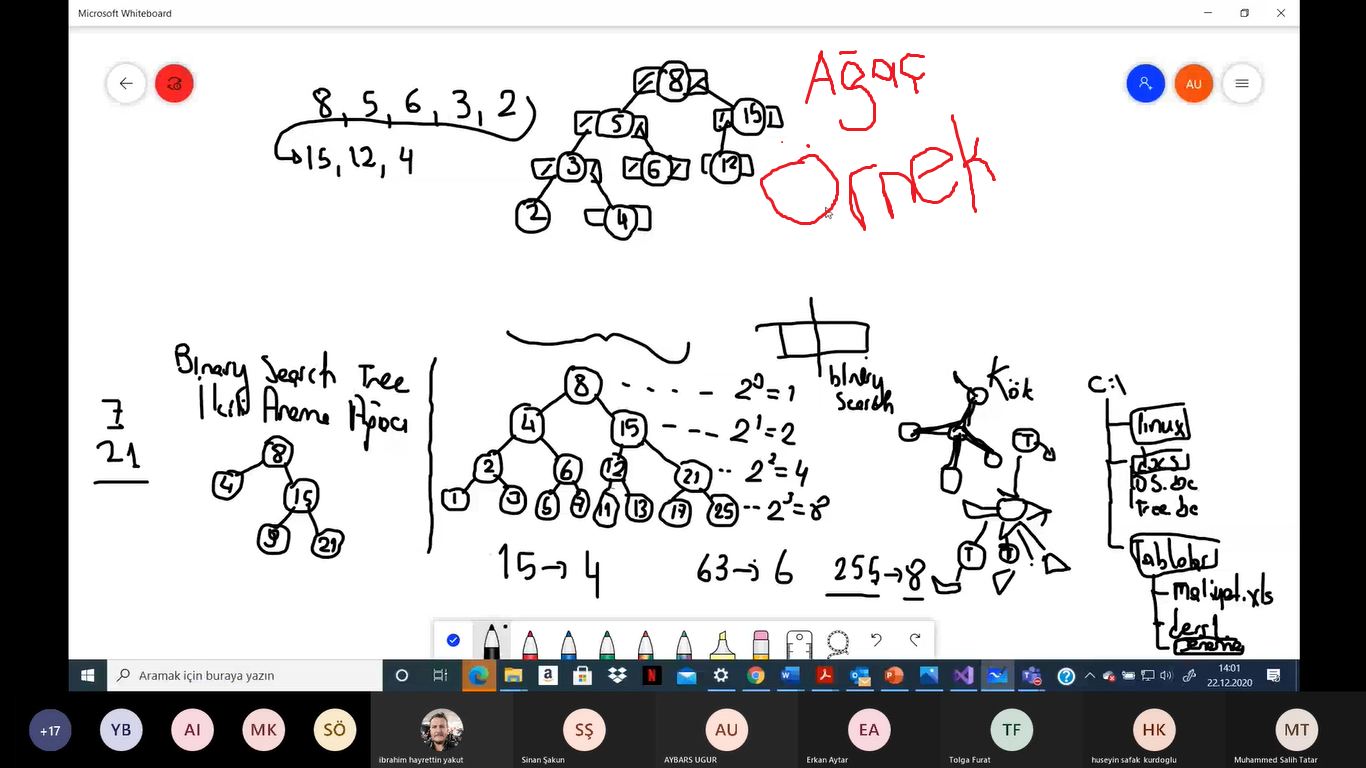 Microsoft Whiteboard
8, 5, 6, 3, 2
15, 12, 4
8
5 15
3 6 12
2 4
Ağaç
Örnek
AU
Binary Search Tree
İkili Arama Ağacı
7
21
8
4 15
9 21
8 2^0=1
4 15 2^1=2
2 6 12 21 2^2=4
1 3 5 7 11 13 17 25 2^3=8
15→4 63→6 255→8
binary
search
Kök
T
T T
C:\
linux
OS.doc
Tree.doc
Tablolar
maliyet.xls
Aramak için buraya yazın
14:01
22.12.2020
+17 YB AI MK SÖ SŞ AU EA TF HK MT
ibrahim hayrettin yakut Sinan Şakun AYBARS UGUR Erkan Aytar Tolga Furat huseyin safak kurdoglu Muhammed Salih Tatar